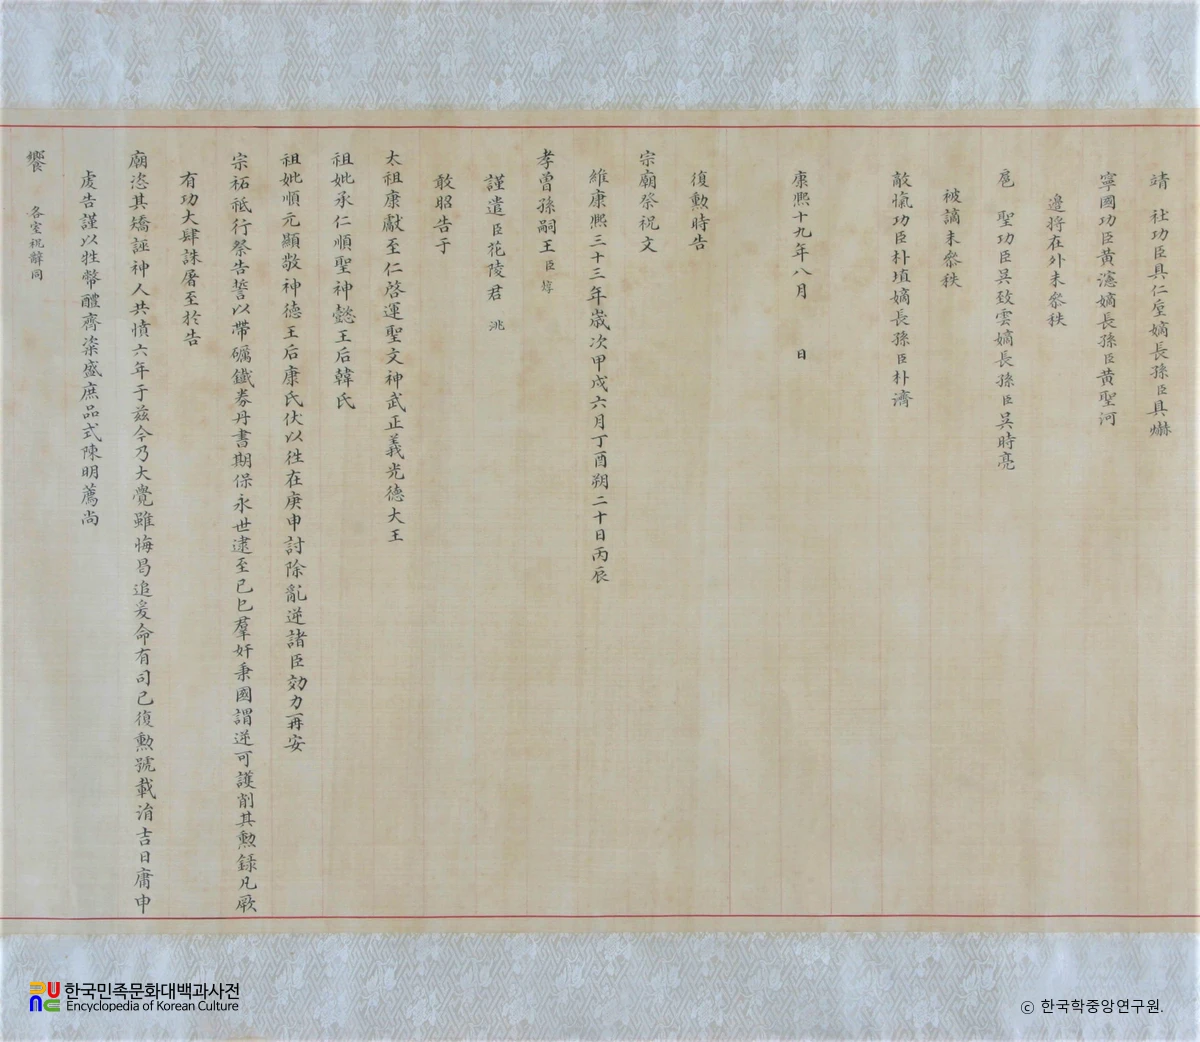 靖 社功臣具仁垕嫡長孫臣具爀
寧國功臣黃瀗嫡長孫臣黃聖河
邊將在外未參秩
扈 聖功臣吳致雲嫡長孫臣吳時亮
被謫未參秩
敵愾功臣朴埴嫡長孫臣朴濟
康熙十九年八月 日
復勳時告
宗廟祭祝文
維康熙三十三年歲次甲戌六月丁酉朔二十日丙辰
孝曾孫嗣王臣 焞
謹遣臣花陵君 洮
敢昭告于
太祖康獻至仁啓運聖文神武正義光德大王
祖妣承仁順聖神懿王后韓氏
祖妣順元顯敬神德王后康氏伏以徃在庚申討除亂逆諸臣効力再安
宗祏祗行祭告誓以帶礪鐵券丹書期保永世逮至己巳羣奸秉國謂逆可護削其勳錄凡厥
有功大肆誅屠至於告
廟恣其矯誣神人共憤六年于玆今乃大覺雖悔曷追爰命有司已復勳號載涓吉日庸申
虔告謹以牲幣醴齊粢盛庶品式陳明薦尚
饗 各室祝辭同
한국민족문화대백과사전
Encyclopedia of Korean Culture
ⓒ 한국학중앙연구원.